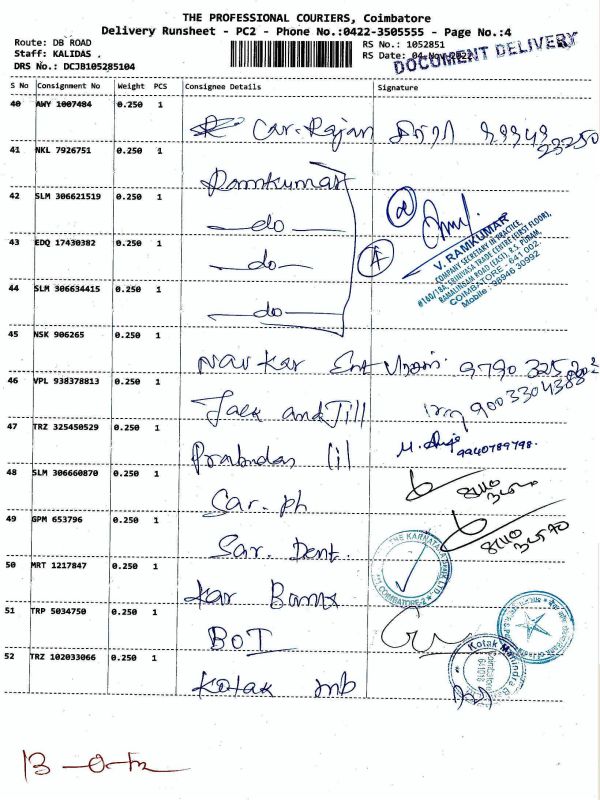 THE PROFESSIONAL COURIERS, Coimbatore
Delivery Runsheet - PC2 - Phone No.:0422-3505555 - Page No.:4
Route: DB ROAD
Staff: KALIDAS .
DRS No.: DCJB105285104
RS No.: 1052851
RS Date: 04-Nov-2022
DOCUMENT DELIVERY
S No Consignment No Weight PCS Consignee Details Signature
40 AWY 1007484 0.250 1 Car. Rajan
41 NKL 7926751 0.250 1 Ramkumar
42 SLM 306621519 0.250 1 —do—
43 EDQ 17430382 0.250 1 —do—
44 SLM 306634415 0.250 1 —do—
V. RAMKUMAR
COMPANY SECRETARY IN PRACTICE,
#160/18A, SRINIVASA TRADE CENTRE (FIRST FLOOR),
RAMALINGAM ROAD (EAST), R.S. PURAM,
COIMBATORE - 641 002.
Mobile : 98946 30992
45 NSK 906265 0.250 1 Navkar
46 VPL 938378813 0.250 1 Jack and Jill
47 TRZ 325450529 0.250 1 Prabhudas Lil 9940789798.
48 SLM 306660870 0.250 1 Car. ph
49 GPM 653796 0.250 1 Sar. Dent.
50 MRT 1217847 0.250 1 Kar
THE KARNATAKA BANK LTD
COIMBATORE-2
51 TRP 5034750 0.250 1 BOI
52 TRZ 102033066 0.250 1 Kotak mb
Kotak Mahindra Bank
Coimbatore
641018